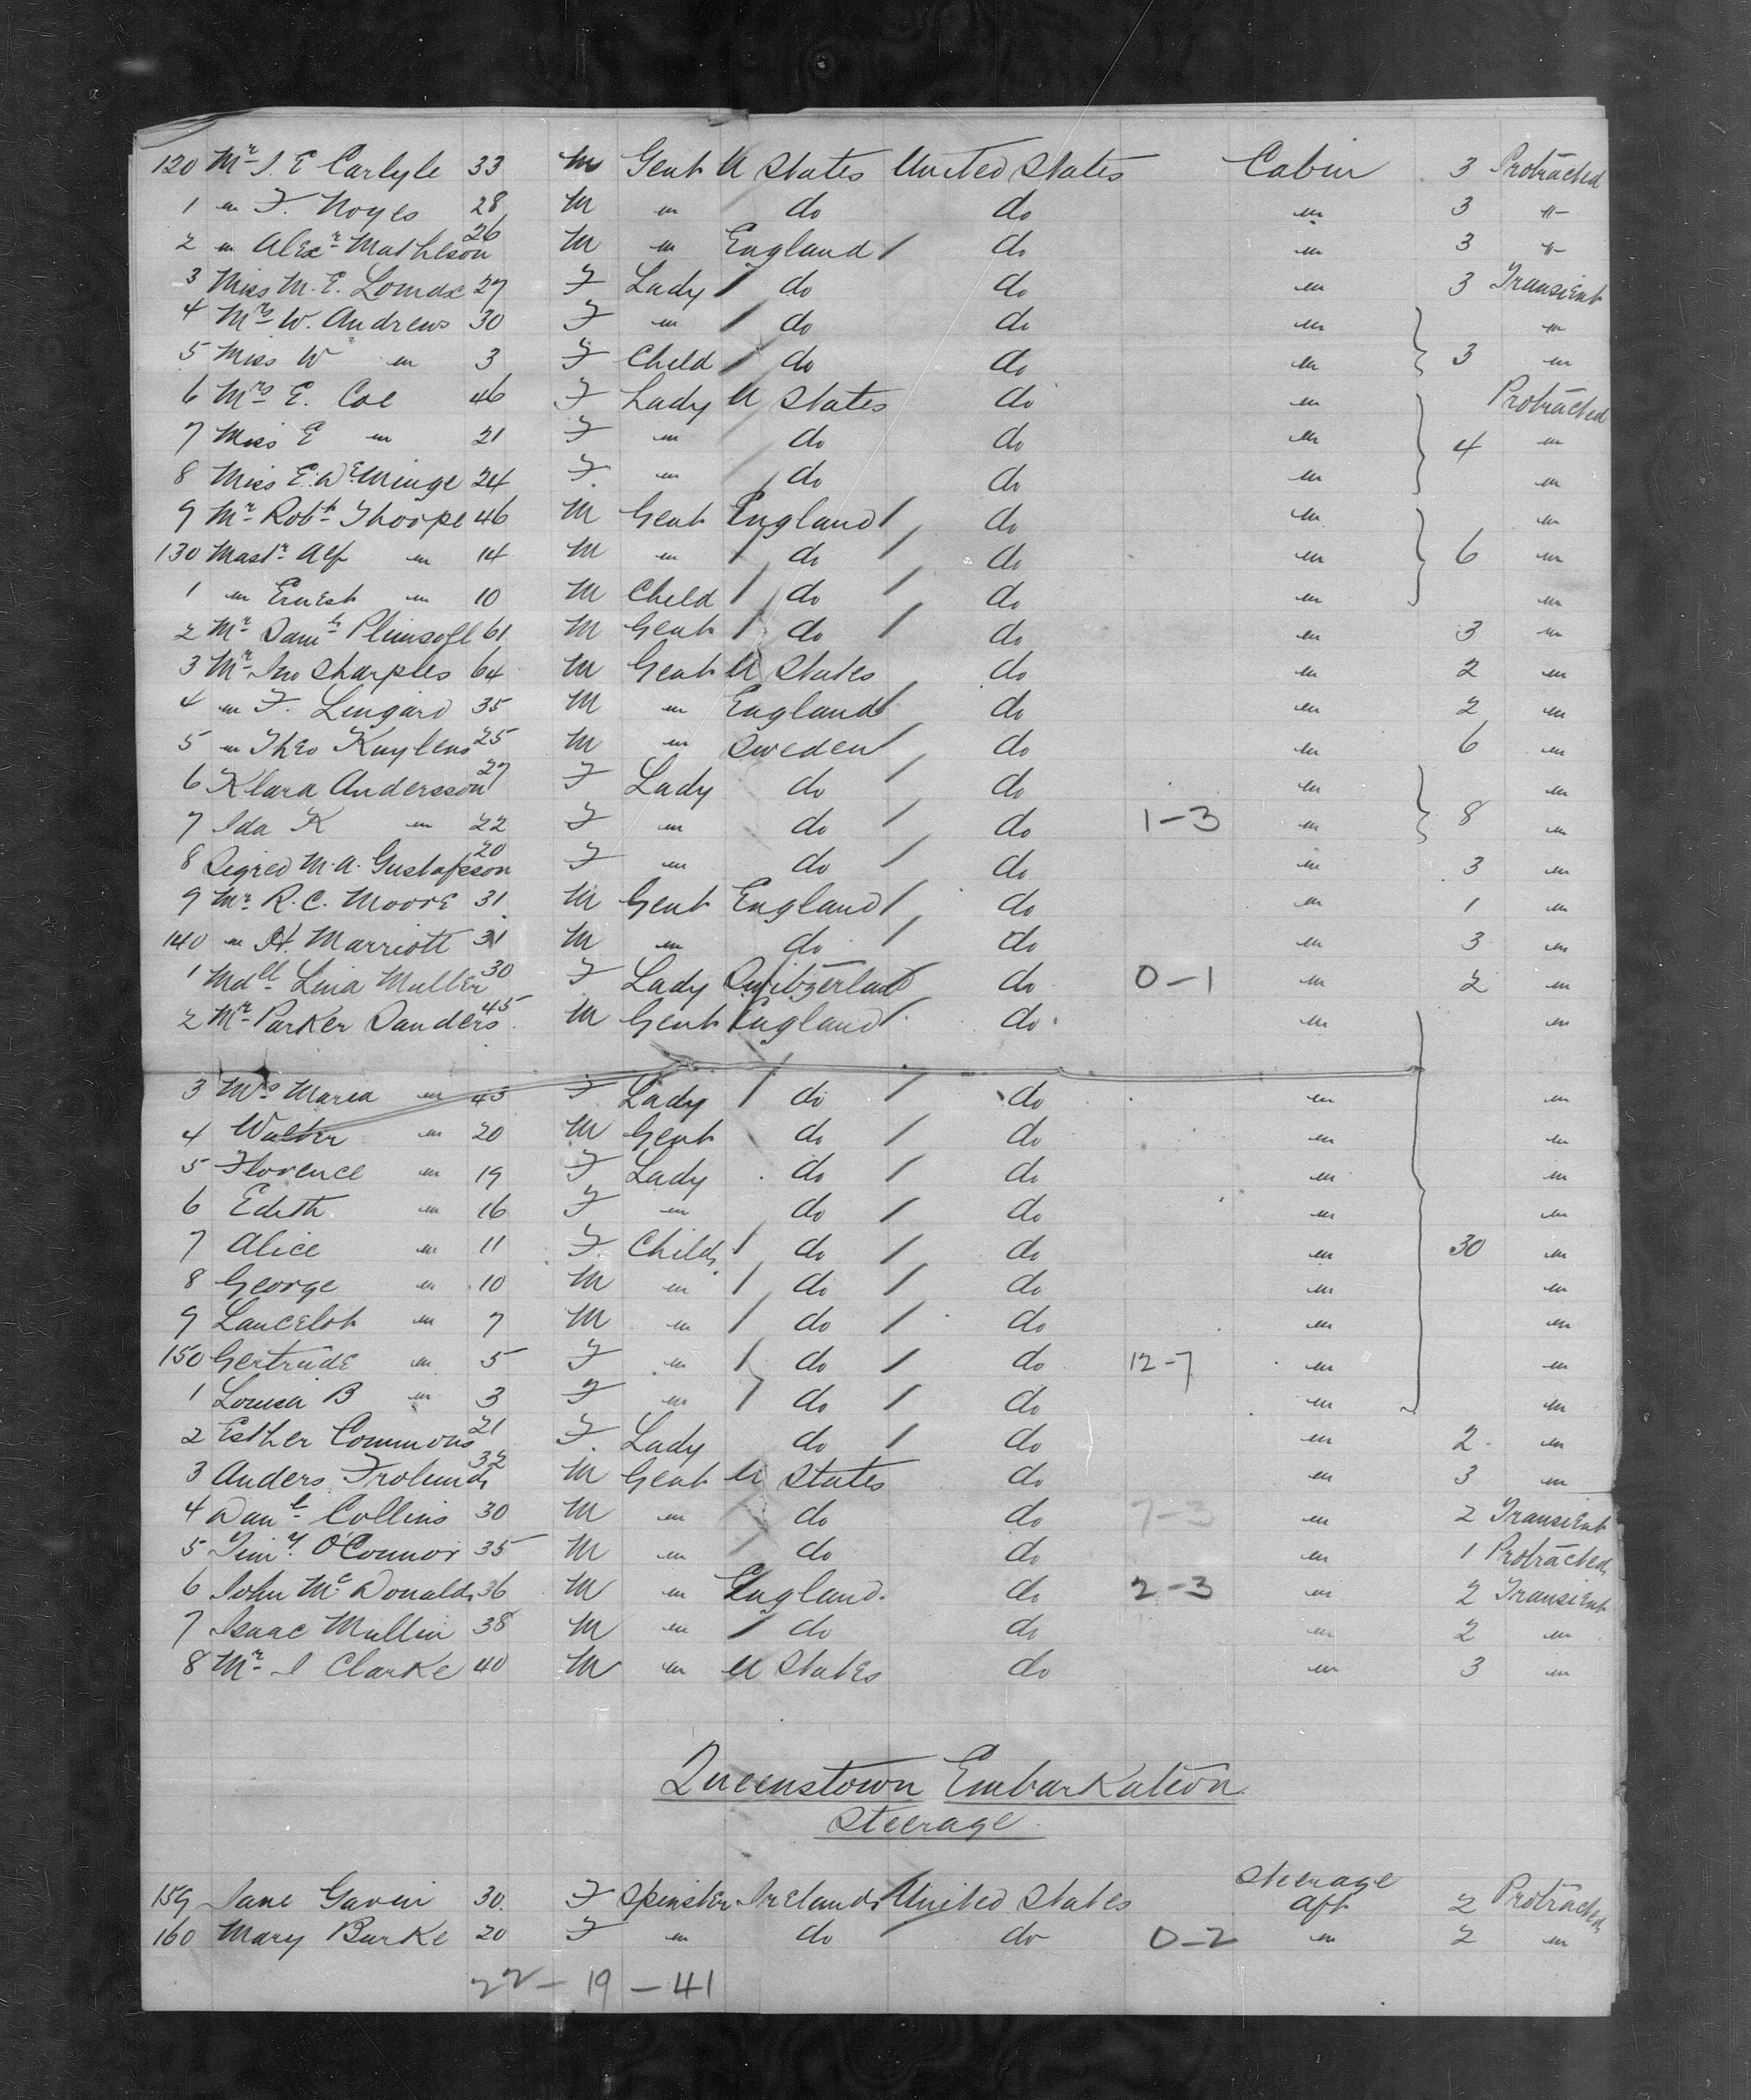 120 Mr J. E Carlyle 33 M Gent U States United States Cabin 3 Protracted
1 " F. Noyes 28 M " do do " 3 "
2 " Alexr Mathieson 26 M " England do " 3 "
3 Miss M. E. Lomax 27 F Lady do do " 3 Transient
4 Mrs W. Andrews 30 F " do do " "
5 Miss W " 3 F Child do do " 3 "
6 Mrs E. Coe 46 F Lady U States do " Protracted
7 Miss E " 21 F " do do " 4 "
8 Miss E. 24 F. " do do " "
9 Mr Robt Thorpe 46 M Gent England do " "
130 Mastr Alf " 14 M " do do " 6 "
1 " Ernest " 10 M Child do do " "
2 Mr Saml Plimsoll 61 M Gent do do " 3 "
3 Mr Jno Sharples 64 M Gent U States do " 2 "
4 " F. Lingard 35 M " England do " 2 "
5 " Theo Kuylens 25 M " Sweden do " 6 "
6 Klara Andersson 27 F Lady do do " "
7 Ida K " 22 F " do do 1-3 " 8 "
8 Sigred M. A. Gustafsson 20 F " do do " 3 "
9 Mr R. C. Moore 31 M Gent England do " 1 "
140 " H. Marriott 31 M " do do " 3 "
1 Mdlle Lina Muller 30 F Lady Switzerland do 0-1 " 2 "
2 Mr Parker Sanders 45 M Gent England do " "
3 Mrs Maria " 45 F Lady do do " "
4 Walter " 20 M Gent do do " "
5 Florence " 19 F Lady do do " "
6 Edith " 16 F " do do " "
7 Alice " 11 F Child do do " 30 "
8 George " 10 M " do do " "
9 Lancelot " 7 M " do do " "
150 Gertrude " 5 F " do do 12-7 " "
1 Louisa B " 3 F " do do " "
2 Esther Commons 21 F. Lady do do " 2 "
3 Anders Frolund 32 M Gent U States do " 3 "
4 Danl Collins 30 M " do do 7-3 " 2 Transient
5 Timy O'Connor 35 M " do do " 1 Protracted
6 John Mc Donald 36 M " England do 2-3 " 2 Transient
7 Isaac Mullin 38 M " do do " 2 "
8 Mr J Clarke 40 M " U States do " 3 "
Queenstown Embarkation
Steerage
159 Jane Gavin 30. F Spinster Ireland United States Steerage aft 2 Protracted
160 Mary Burke 20 F " do do 0-2 " 2 "
22 - 19 - 41